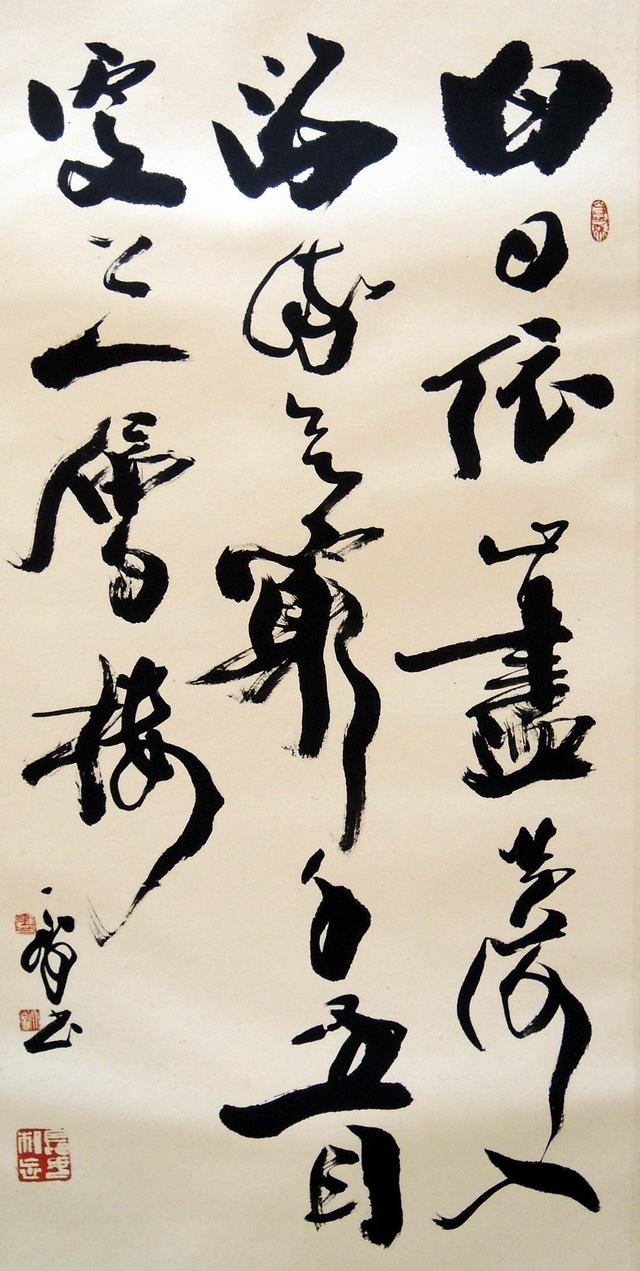 白日依山盡黃河入
海流欲窮千里目
更上一層樓
書